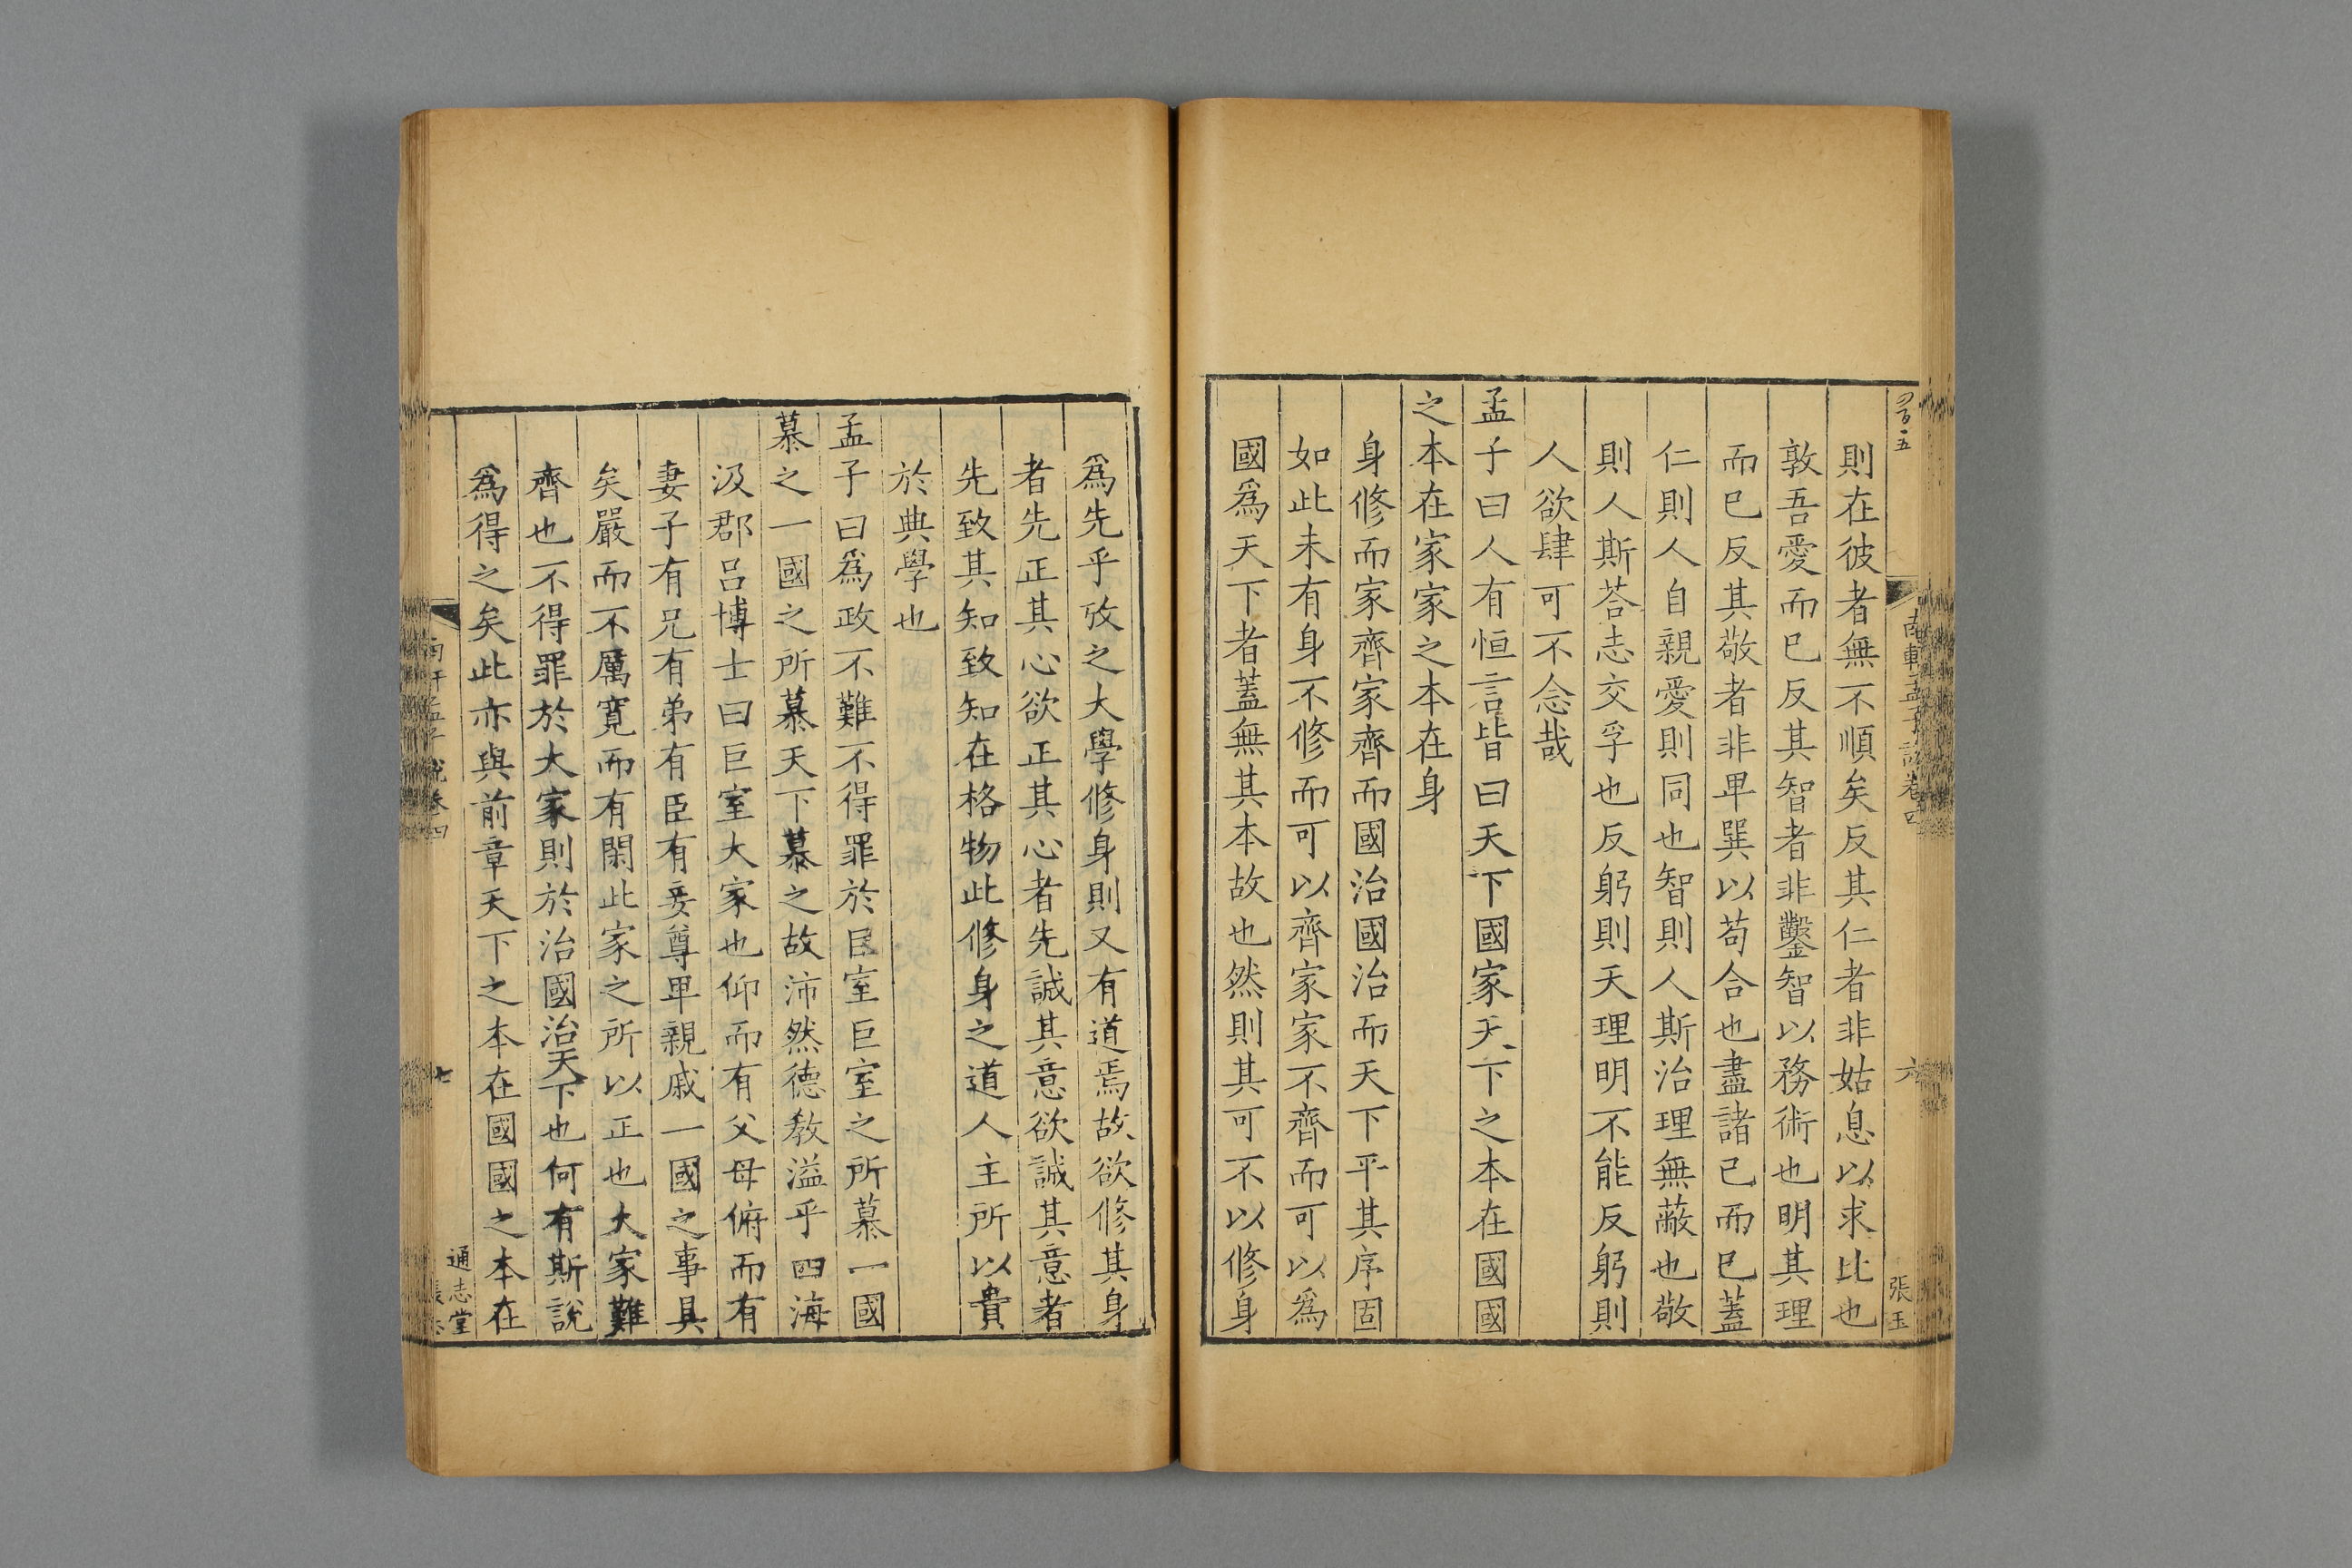 則在彼者無不順矣反其仁者非姑息以求比也
敦吾愛而已反其智者非鑿智以務術也明其理
而已反其敬者非卑巽以苟合也盡諸已而已蓋
仁則人自親愛則同也智則人斯治理無蔽也敬
則人斯荅志交孚也反躬則天理明不能反躬則
人欲肆可不念哉
孟子曰人有恒言皆曰天下國家天下之本在國國
之本在家家之本在身
身修而家齊家齊而國治國治而天下平其序固
如此未有身不修而可以齊家家不齊而可以爲
國爲天下者蓋無其本故也然則其可不以修身
爲先乎攷之大學修身則又有道焉故欲修其身
者先正其心欲正其心者先誠其意欲誠其意者
先致其知致知在格物此修身之道人主所以貴
於典學也
孟子曰爲政不難不得罪於巨室巨室之所慕一國
慕之一國之所慕天下慕之故沛然德敎溢乎四海
汲郡呂博士曰巨室大家也仰而有父母俯而有
妻子有兄有弟有臣有妾尊卑親戚一國之事具
矣嚴而不厲寬而有閑此家之所以正也大家難
齊也不得罪於大家則於治國治天下也何有斯說
爲得之矣此亦與前章天下之本在國國之本在
南軒孟子說卷四
六
張玉
孟子說卷四
七
通志堂